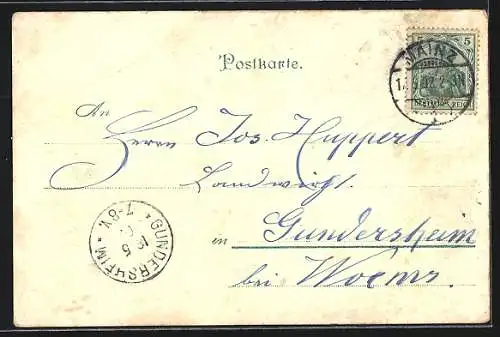 Postkarte.
5 5
MAINZ
An
Herrn Jos. Huppert
Landwirt.
in Gundersheim
bei Worms.
GUNDERSHEIM
7-8 V.